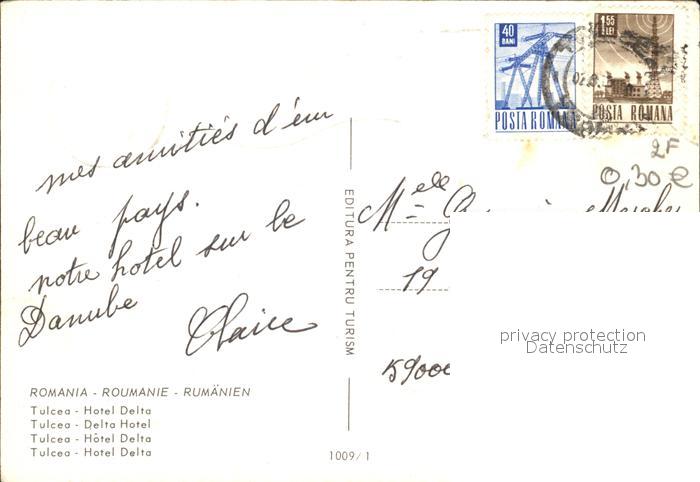 40 BANI
POSTA ROMANA
1,55 LEI
POSTA ROMANA
2F
0,30 €
mes amitiés d'un
beau pays.
notre hotel sur le
Danube
Claire
EDITURA PENTRU TURISM
Melle
19
59000
privacy protection
Datenschutz
ROMANIA - ROUMANIE - RUMÄNIEN
Tulcea - Hotel Delta
Tulcea - Delta Hotel
Tulcea - Hôtel Delta
Tulcea - Hotel Delta
1009/1